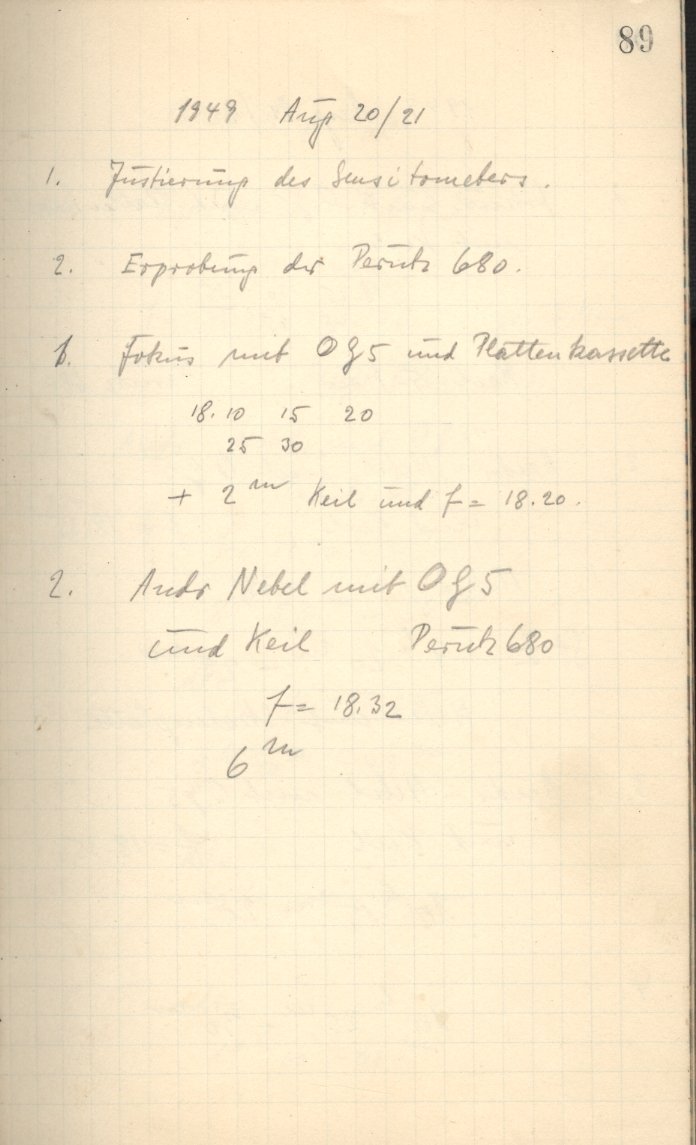 89
1949 Aug 20/21
1. Justierung des Sensitometers.
2. Erprobung der Perutz 680.
1. Fokus mit OG5 und Plattenkassette
18.10 15 20
25 30
+ 2 m Keil und f = 18.20.
2. Andr Nebel mit OG5
und Keil Perutz 680
f = 18.32
6 m